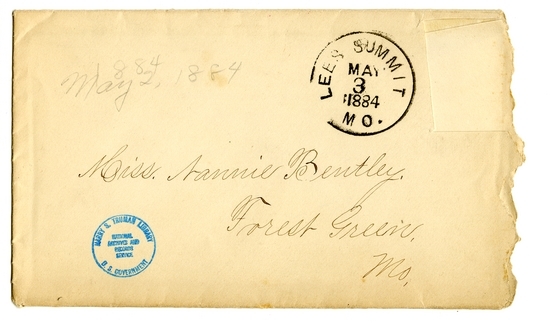 884
May 2, 1884
LEES SUMMIT
MAY
3
1884
MO.
Miss. Nannie Bentley.
Forest Green,
Mo.
HARRY S. TRUMAN LIBRARY
NATIONAL
ARCHIVES AND
RECORDS
SERVICE
U. S. GOVERNMENT